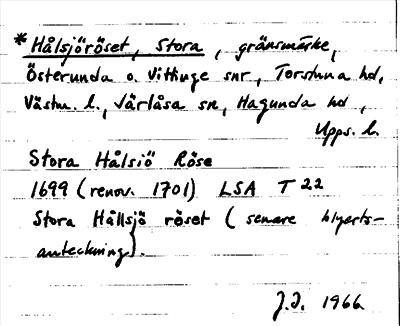 *Hålsjöröset, Stora, gränsmärke,
Österunda o. Vittinge snr, Torstuna hd,
Västm. l., Järlåsa sn, Hagunda hd,
Upps. l.
Stora Hålsiö Röse
1699 (renov. 1701) LSA T 22
Stora Hållsjö röset (senare blyerts-
anteckning).
J.I. 1966